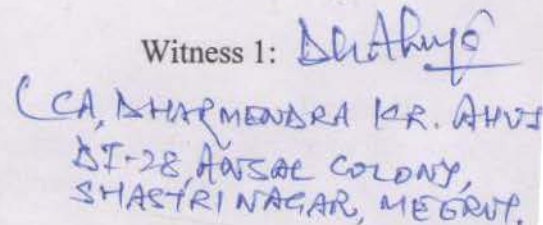 Witness 1: DkAhuja
(CA, DHARMENDRA KR. AHUJ
DI-28, ANSAL COLONY,
SHASTRI NAGAR, MEERUT.